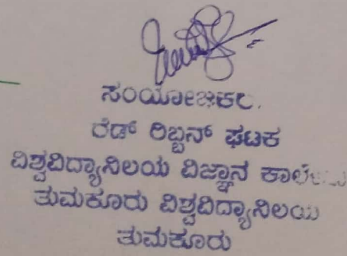 ಸಂಯೋಜಕರು.
ರೆಡ್ ರಿಬ್ಬನ್ ಘಟಕ
ವಿಶ್ವವಿದ್ಯಾನಿಲಯ ವಿಜ್ಞಾನ ಕಾಲೇಜು
ತುಮಕೂರು ವಿಶ್ವವಿದ್ಯಾನಿಲಯ
ತುಮಕೂರು